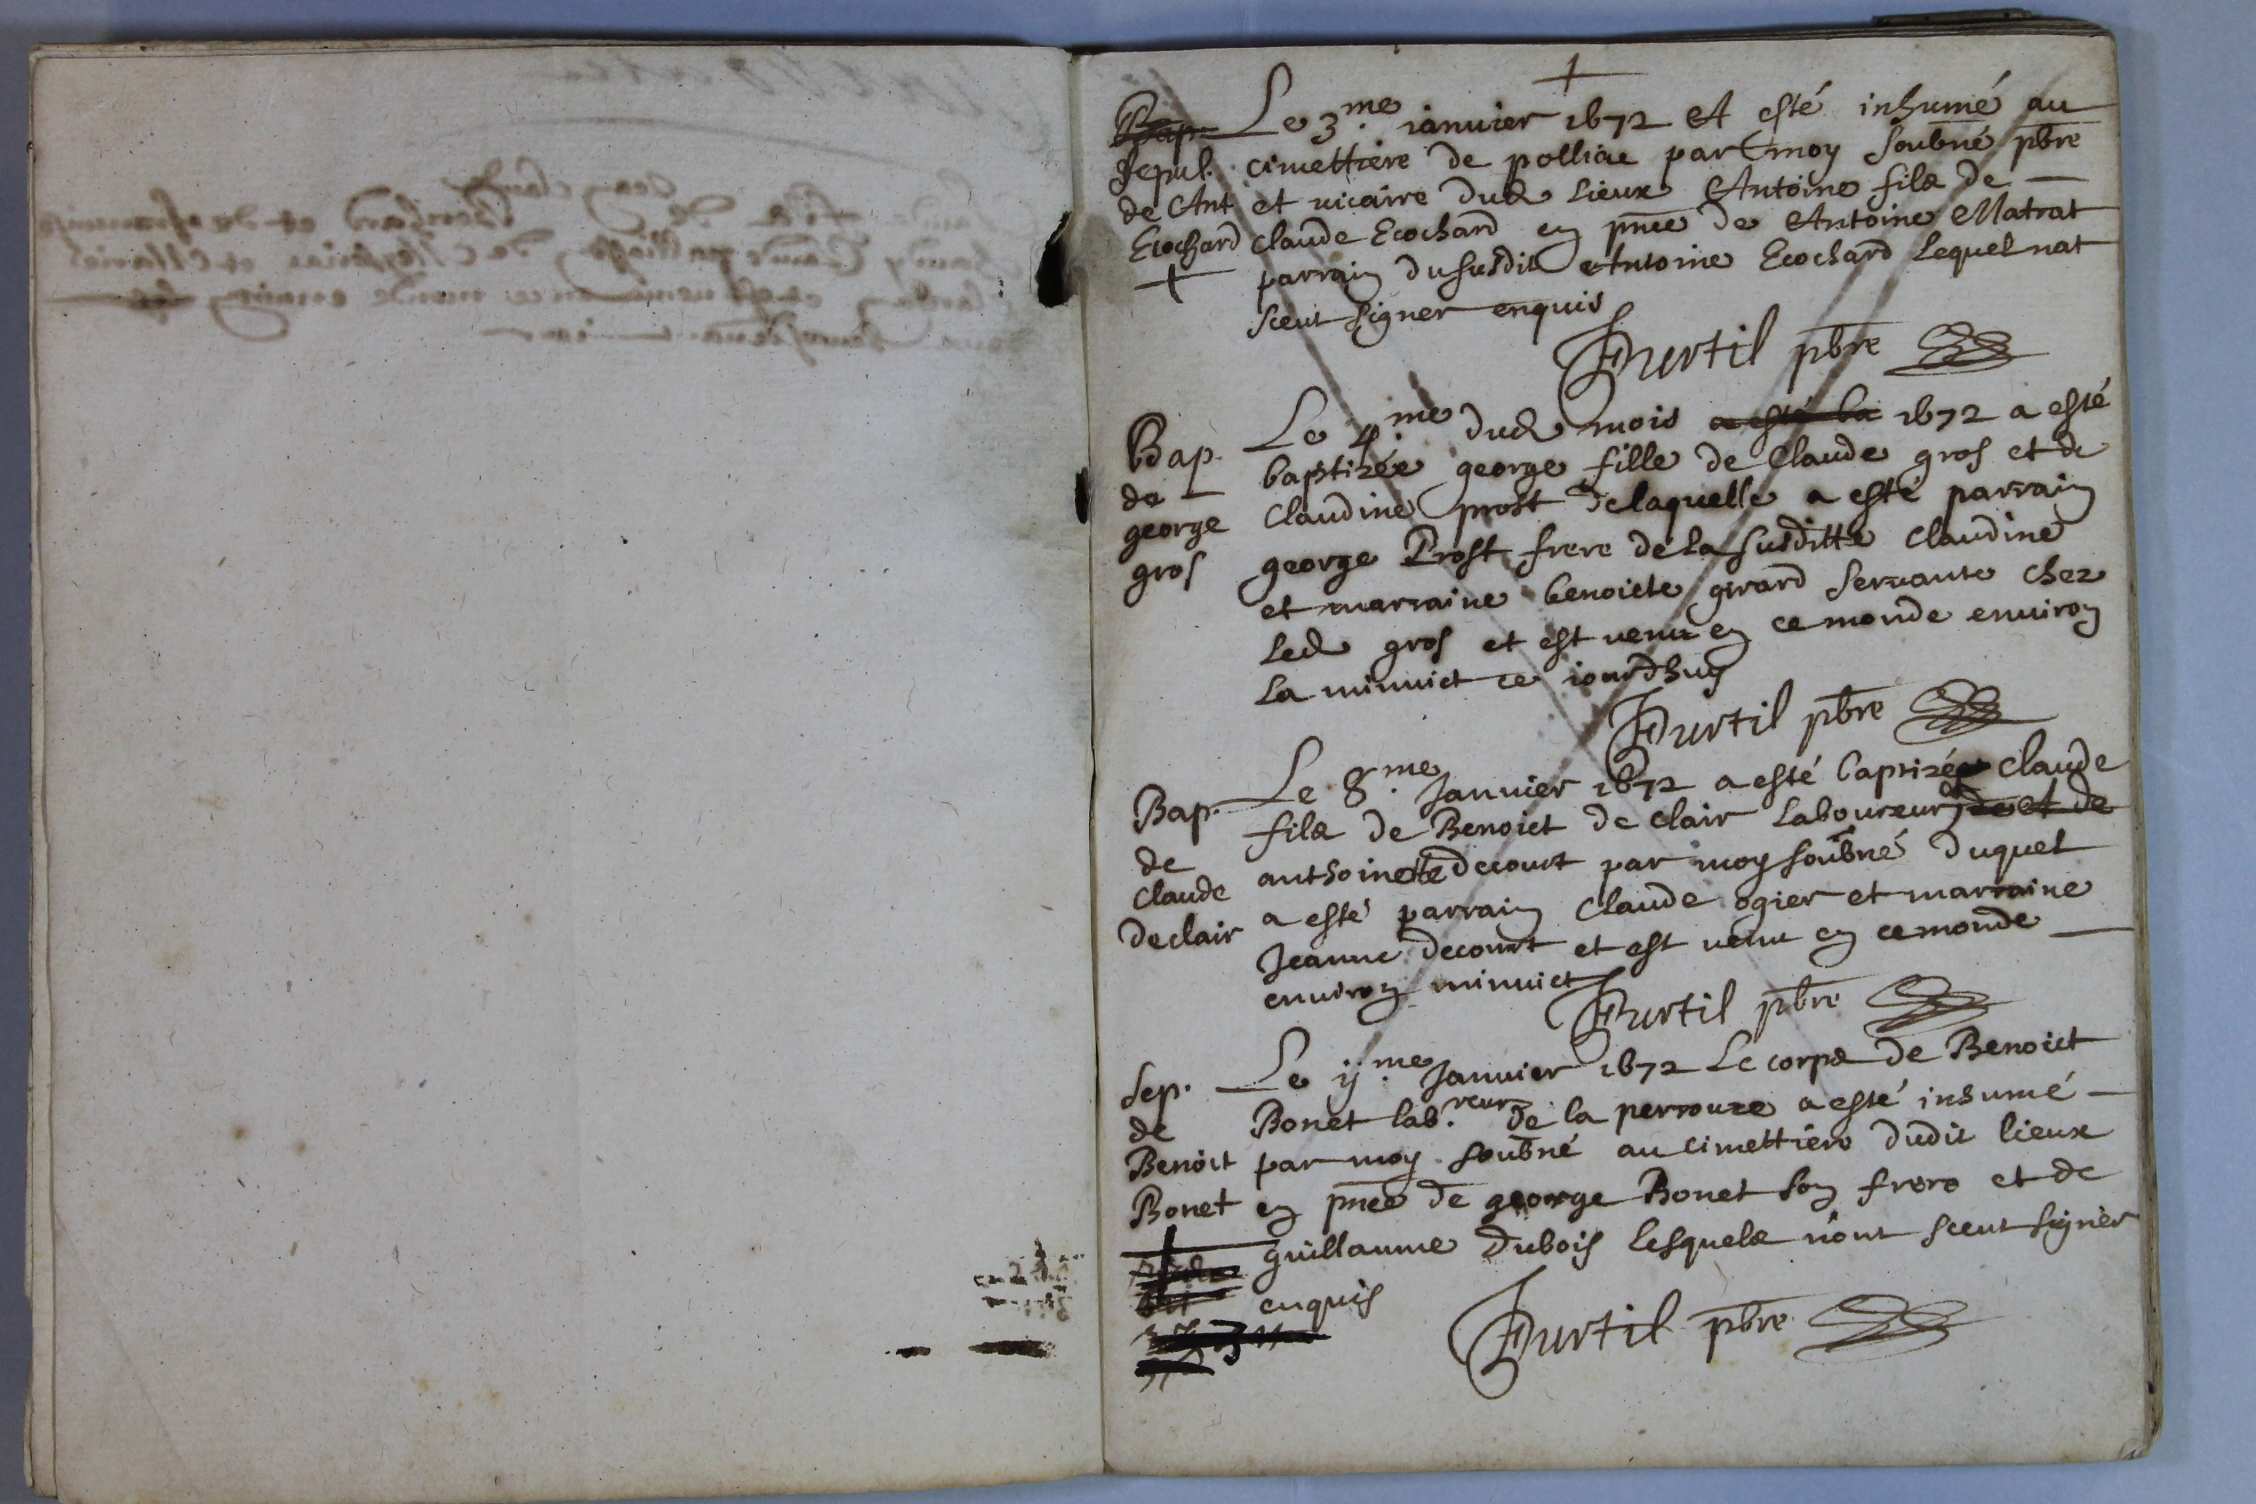 Sepul.
de Ant
Ecochard
Le 3.me ianvier 1672 A esté inhumé au
cimettiere de polliac par moy soubné pbre
et vicaire dud lieux Antoine fils de
claude Ecochard en pnce de Antoine Matrat
parrain dususdit Antoine Ecochard lequel nat
sceut signer enquis
Durtil pbre
Bap.
de
george
gros
Le 4.me dud mois a esté ba 1672 a esté
baptizée george fille de Claude gros et de
Claudine prost delaquelle a esté parrain
george Prost frere dela susditte Claudine
et marraine benoicte girard servante chez
led gros et est venue en ce monde environ
la minuict ce iourdhuy
Durtil pbre
Bap.
de
Claude
declair
Le 8.me Janvier 1672 a esté baptizé Claude
fils de Benoict de clair laboureur et de
anthoinette decourt par moy soubné duquel
a esté parrain Claude ogier et marraine
Jeanne decourt et est venu en ce monde
environ minuict
Durtil pbre
Sep.
de
Benoit
Bonet
Le ij.me Janvier 1672 Le corps de Benoict
Bonet lab.reur de la perrouze a esté inhumé
par moy soubné au cimettiere dudit lieux
en pnce de george Bonet son frere et de
guillaume Dubois lesquels nont sceut signer
enquis
Durtil pbre